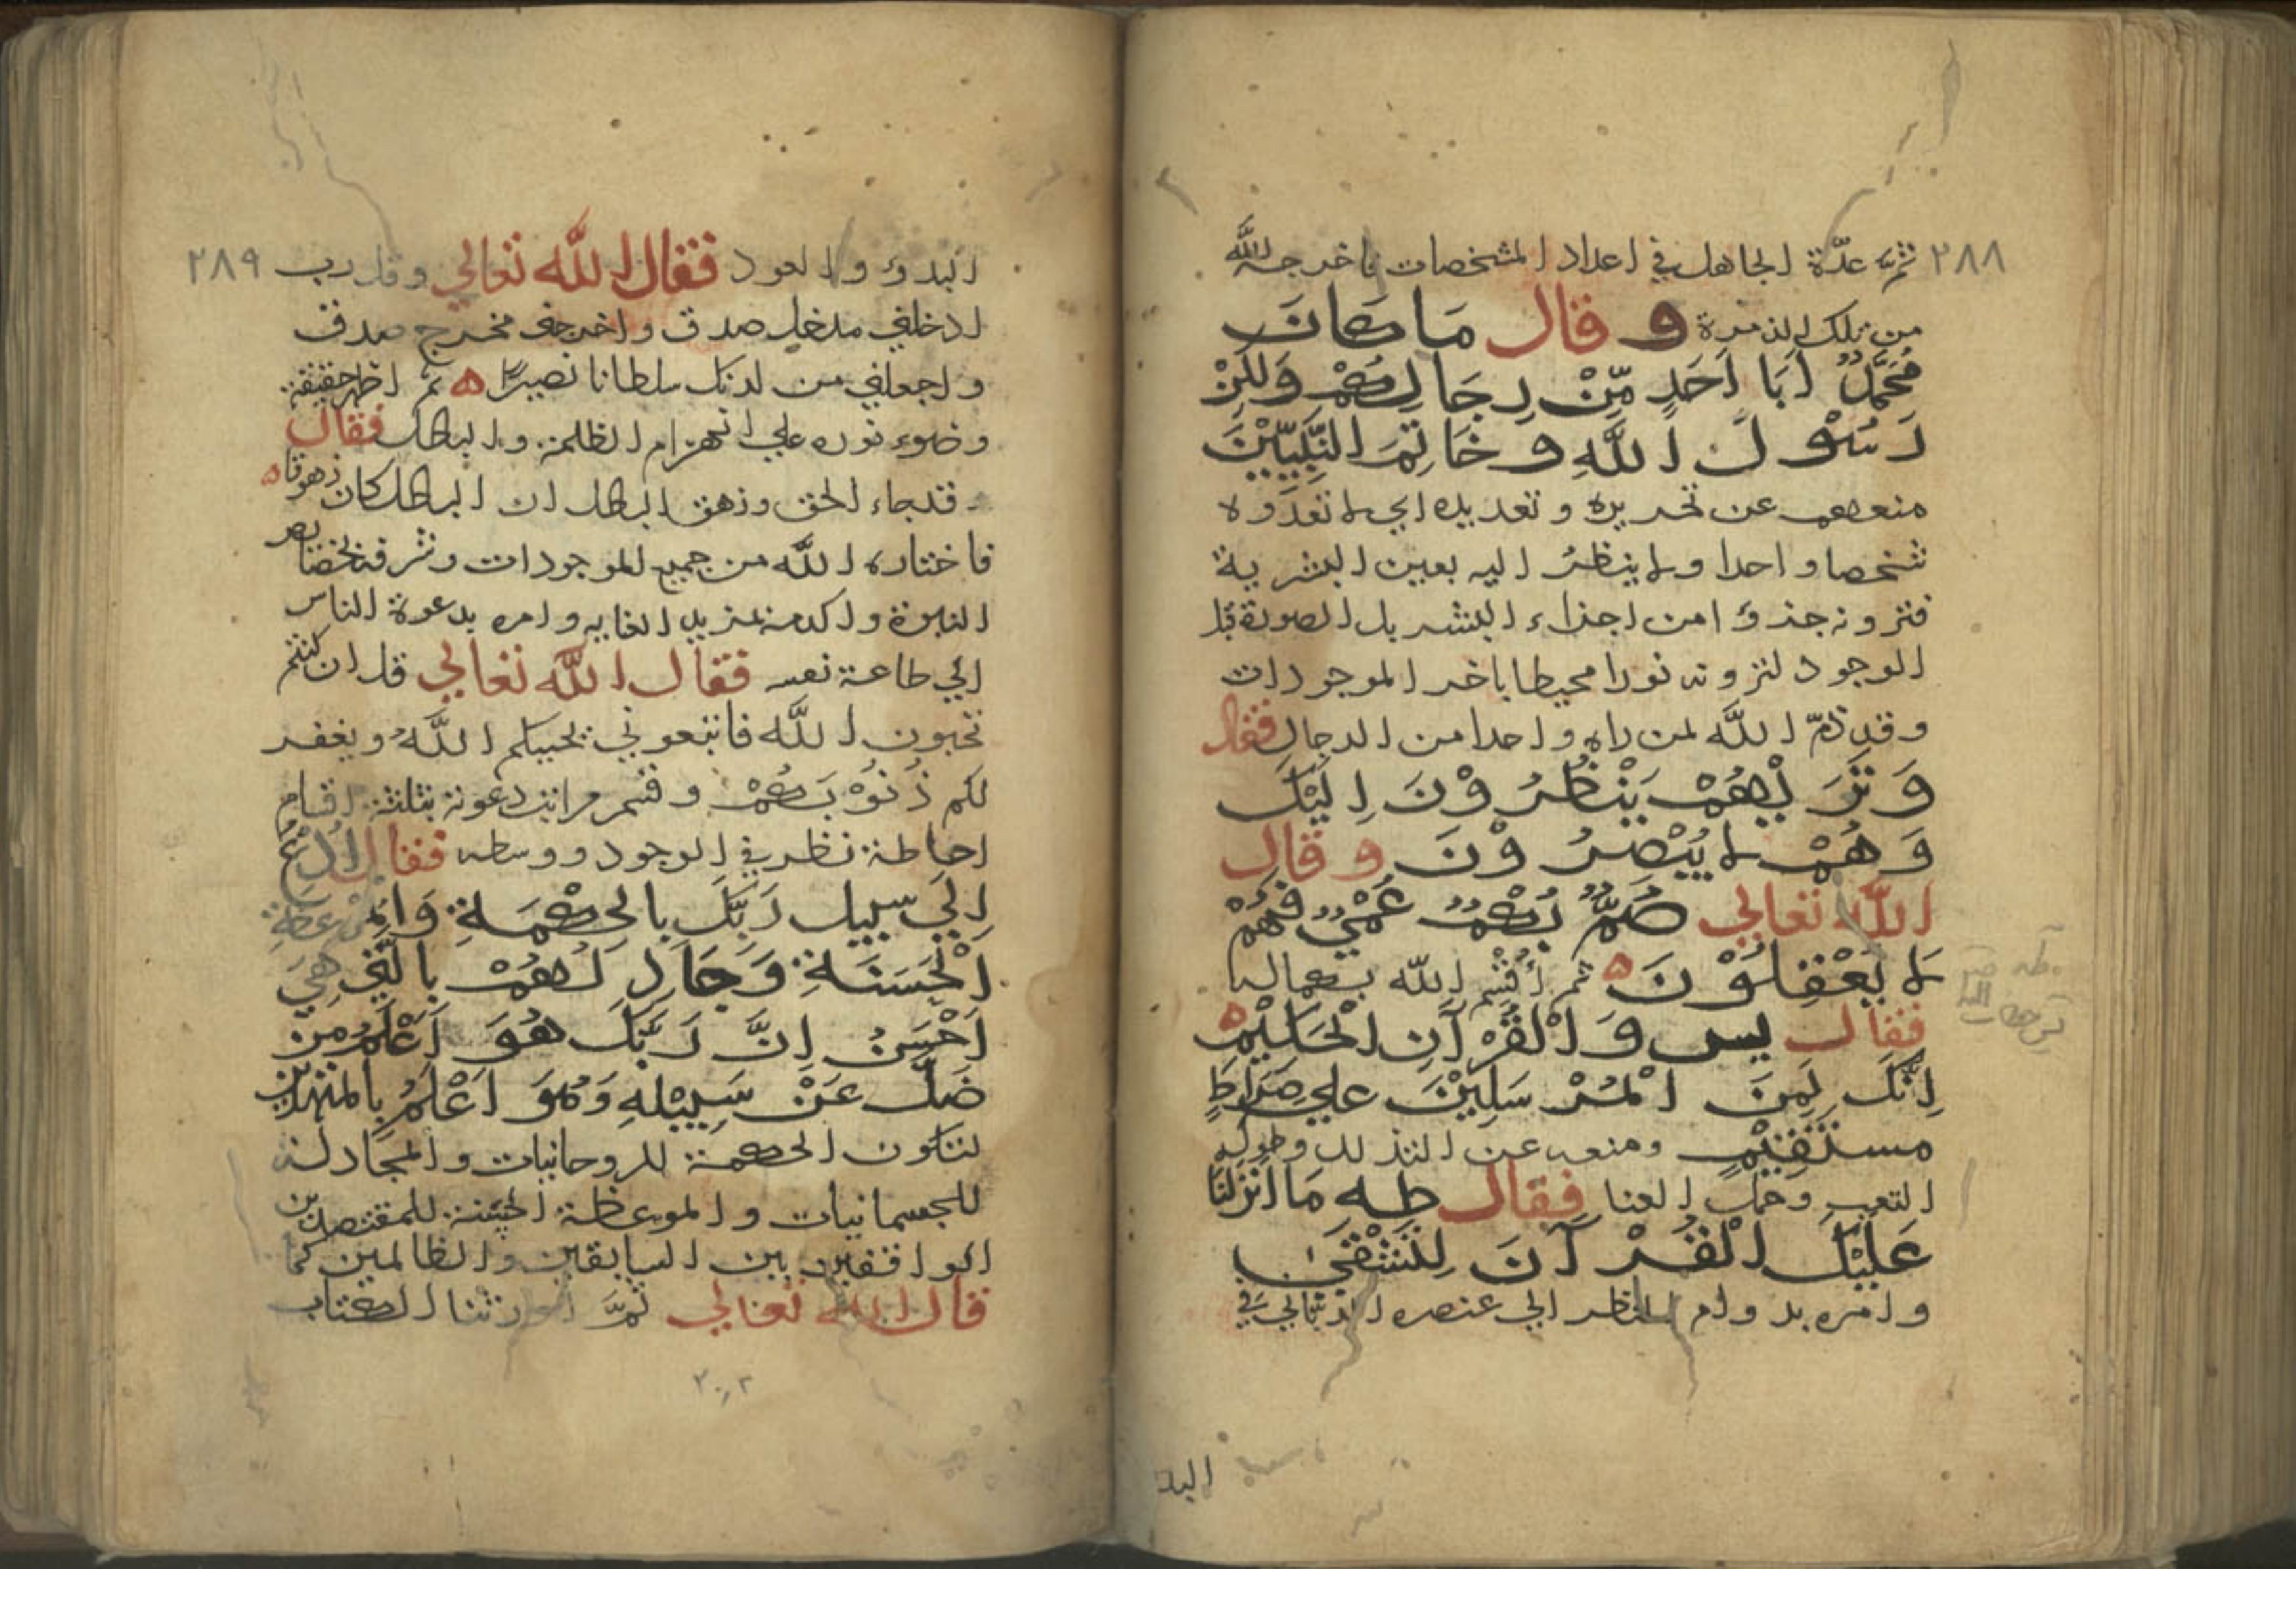 ٢٨٨
ثم عدّة الجاهل في اعداد المشخصات فاخرجه الله
من تلك الزمرة وقال مَا كَانَ
مُحَمَّدٌ اَبَا اَحَدٍ مِّنْ رِجَالِكُمْ وَلٰكِنْ
رَسُوْلَ اللّٰهِ وَخَاتِمَ النَّبِيِّيْنَ
منعهم عن تحريره و تعديده اي لا تعدّوه
شخصا واحدا ولا ينظرُ اليه بعين البشرية
فترونه جذؤا من اجزاء البشر بل الصورة قبل
الوجود لترونه نورا محيطا باخر الموجودات
وقد ذمّ اللّٰه لمن راه واحدا من الرجال فقال
وَتَرَىهُمْ يَنْظُرُوْنَ اِلَيْكَ
وَهُمْ لا يُبْصِرُوْنَ وقال
اللّٰه تعالي صُمٌّ بُكْمٌ عُمْيٌ فَهُمْ
لَا يَعْقِلُوْنَ ه ثم أقْسَم اللّٰه بكماله
فقال يس وَالْقُرْآنِ الْحَكِيْمِ ه
اِنَّكَ لَمِنَ الْمُرْسَلِيْنَ علي صِرَاطٍ
مستَقِيْمٍ ومنعه عن التذلل وطول
التعب وحمل العنا فقال طه مَا انْزَلْنَا
عَلَيْكَ الْقُرْآنَ لِتَشْقَىٰ
وامره بدوام النظر الي عنصره الربّاني في
البد
٢٨٩
البدؤ والعود فقال اللّٰه تعالي وقل رب
ادخلني مدخل صدق واخرجني مخرج صدق
واجعلني من لدنك سلطانا نصيرًا ه ثم اظهر حقيقة
وضوء نوره علي انهزام الظلمة والباطل فقال
قد جاء الحق وزهق الباطل ان الباطل كان زهوقا ه
فاختاره اللّٰه من جميع الموجودات وشرفه بخصايص
النبوة واكرمه بمزيد الغايه وامره بدعوة الناس
الي طاعة نفسه فقال اللّٰه تعالي قل ان كنتم
تحبون اللّٰه فاتبعوني يحببكم اللّٰهُ ويغفر
لكم ذُنُوْبَكُمْ وقسم مراتب دعوته بثلثة اقسام
احاطة نظر في الوجود ووسطه فقال اُدْعُ
اِلَي سبيل رَبِّكَ بالحِكْمَةِ وَالْمَوْعِظَةِ
الْحَسَنَةِ وَجَادِلْهُمْ بالَّتِي هِيَ
اَحْسَنُ اِنَّ رَبَّكَ هُوَ اَعْلَمُ مِن
ضَلَّ عَنْ سَبِيْلِهِ وَهُوَ اَعْلَمُ بِالمهتدين
لتكون الحكمة للروحانيات والمجادلة
للجسمانيات والموعظة الحسنة للمقتصدين
الواقفين بين السابقين والظالمين كما
قال اللّٰه تعالي ثُمَّ اورثنا الكتاب